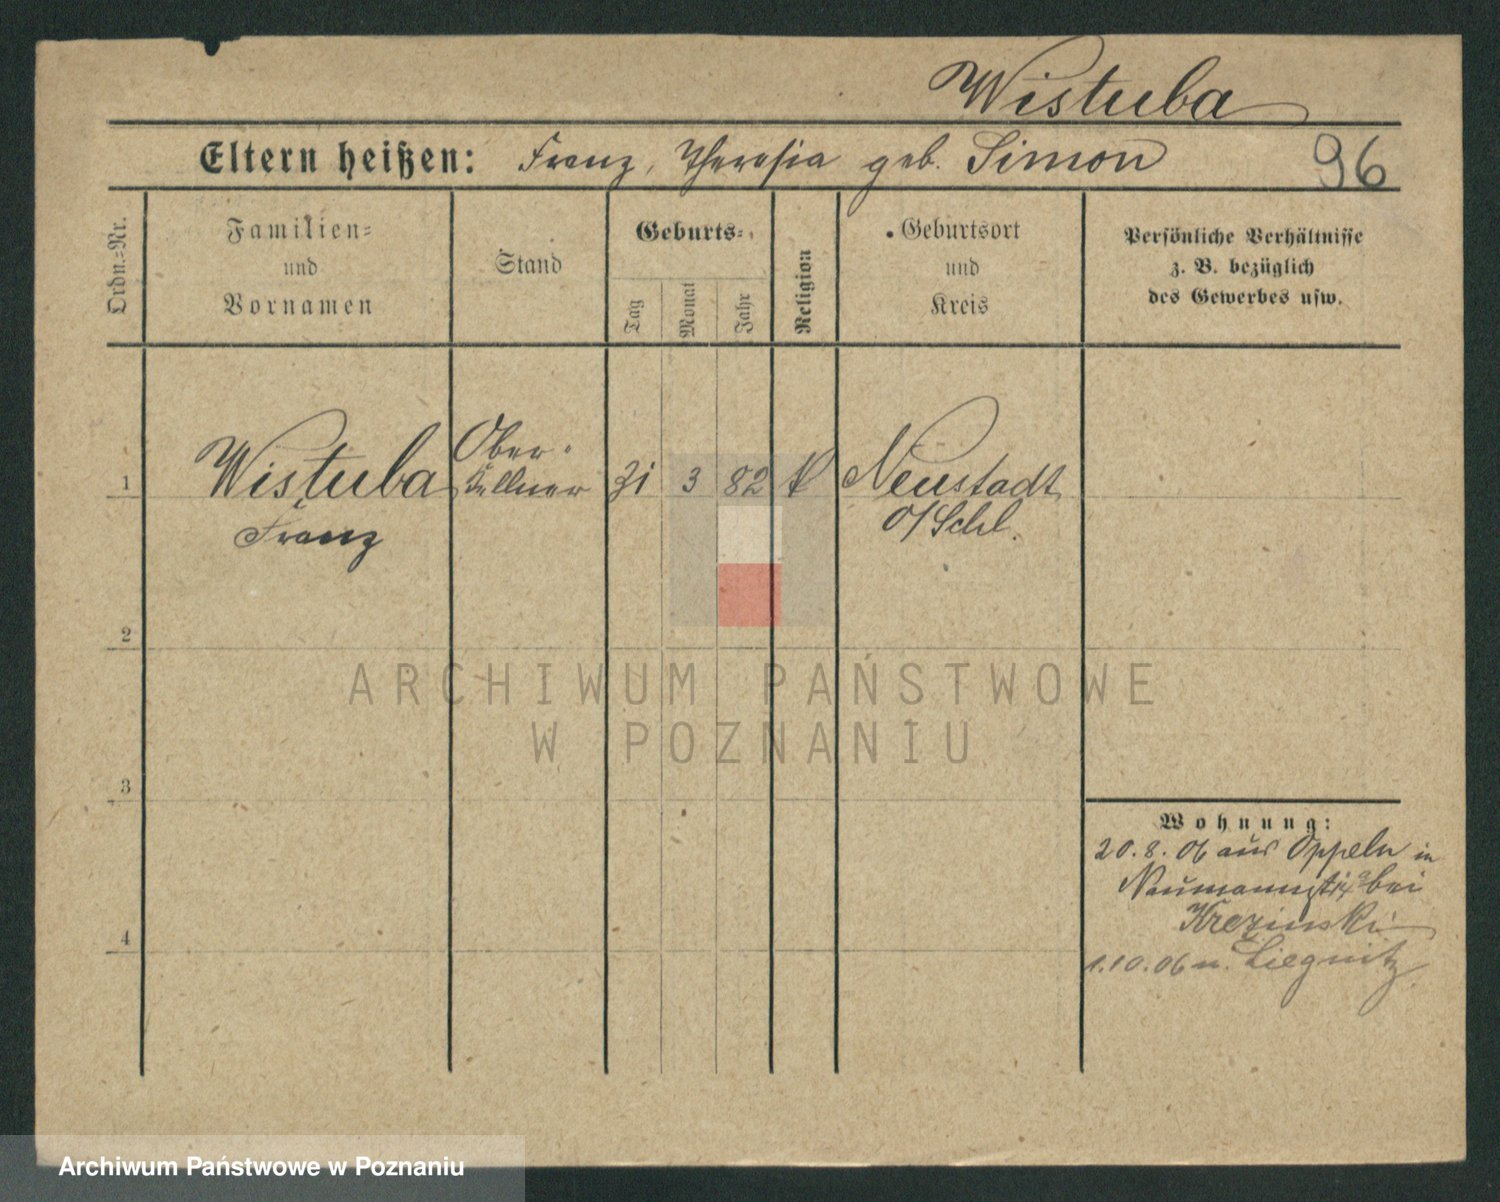 Wistuba
Eltern heißen: Franz, Theresia geb. Simon 96
Ordn.=Nr.
Familien=
und
Vornamen
Stand
Geburts=
Tag
Monat
Jahr
Religion
Geburtsort
und
Kreis
Persönliche Verhältnisse
z. B. bezüglich
des Gewerbes usw.
1 Wistuba Ober- 31 3 82 k Neustadt
Kellner
Franz O/Schl.
2
3
4
Wohnung:
20.8.06 aus Oppeln in
bei
Krezinski
1.10.06 n. Liegnitz
ARCHIWUM PAŃSTWOWE
W POZNANIU
Archiwum Państwowe w Poznaniu